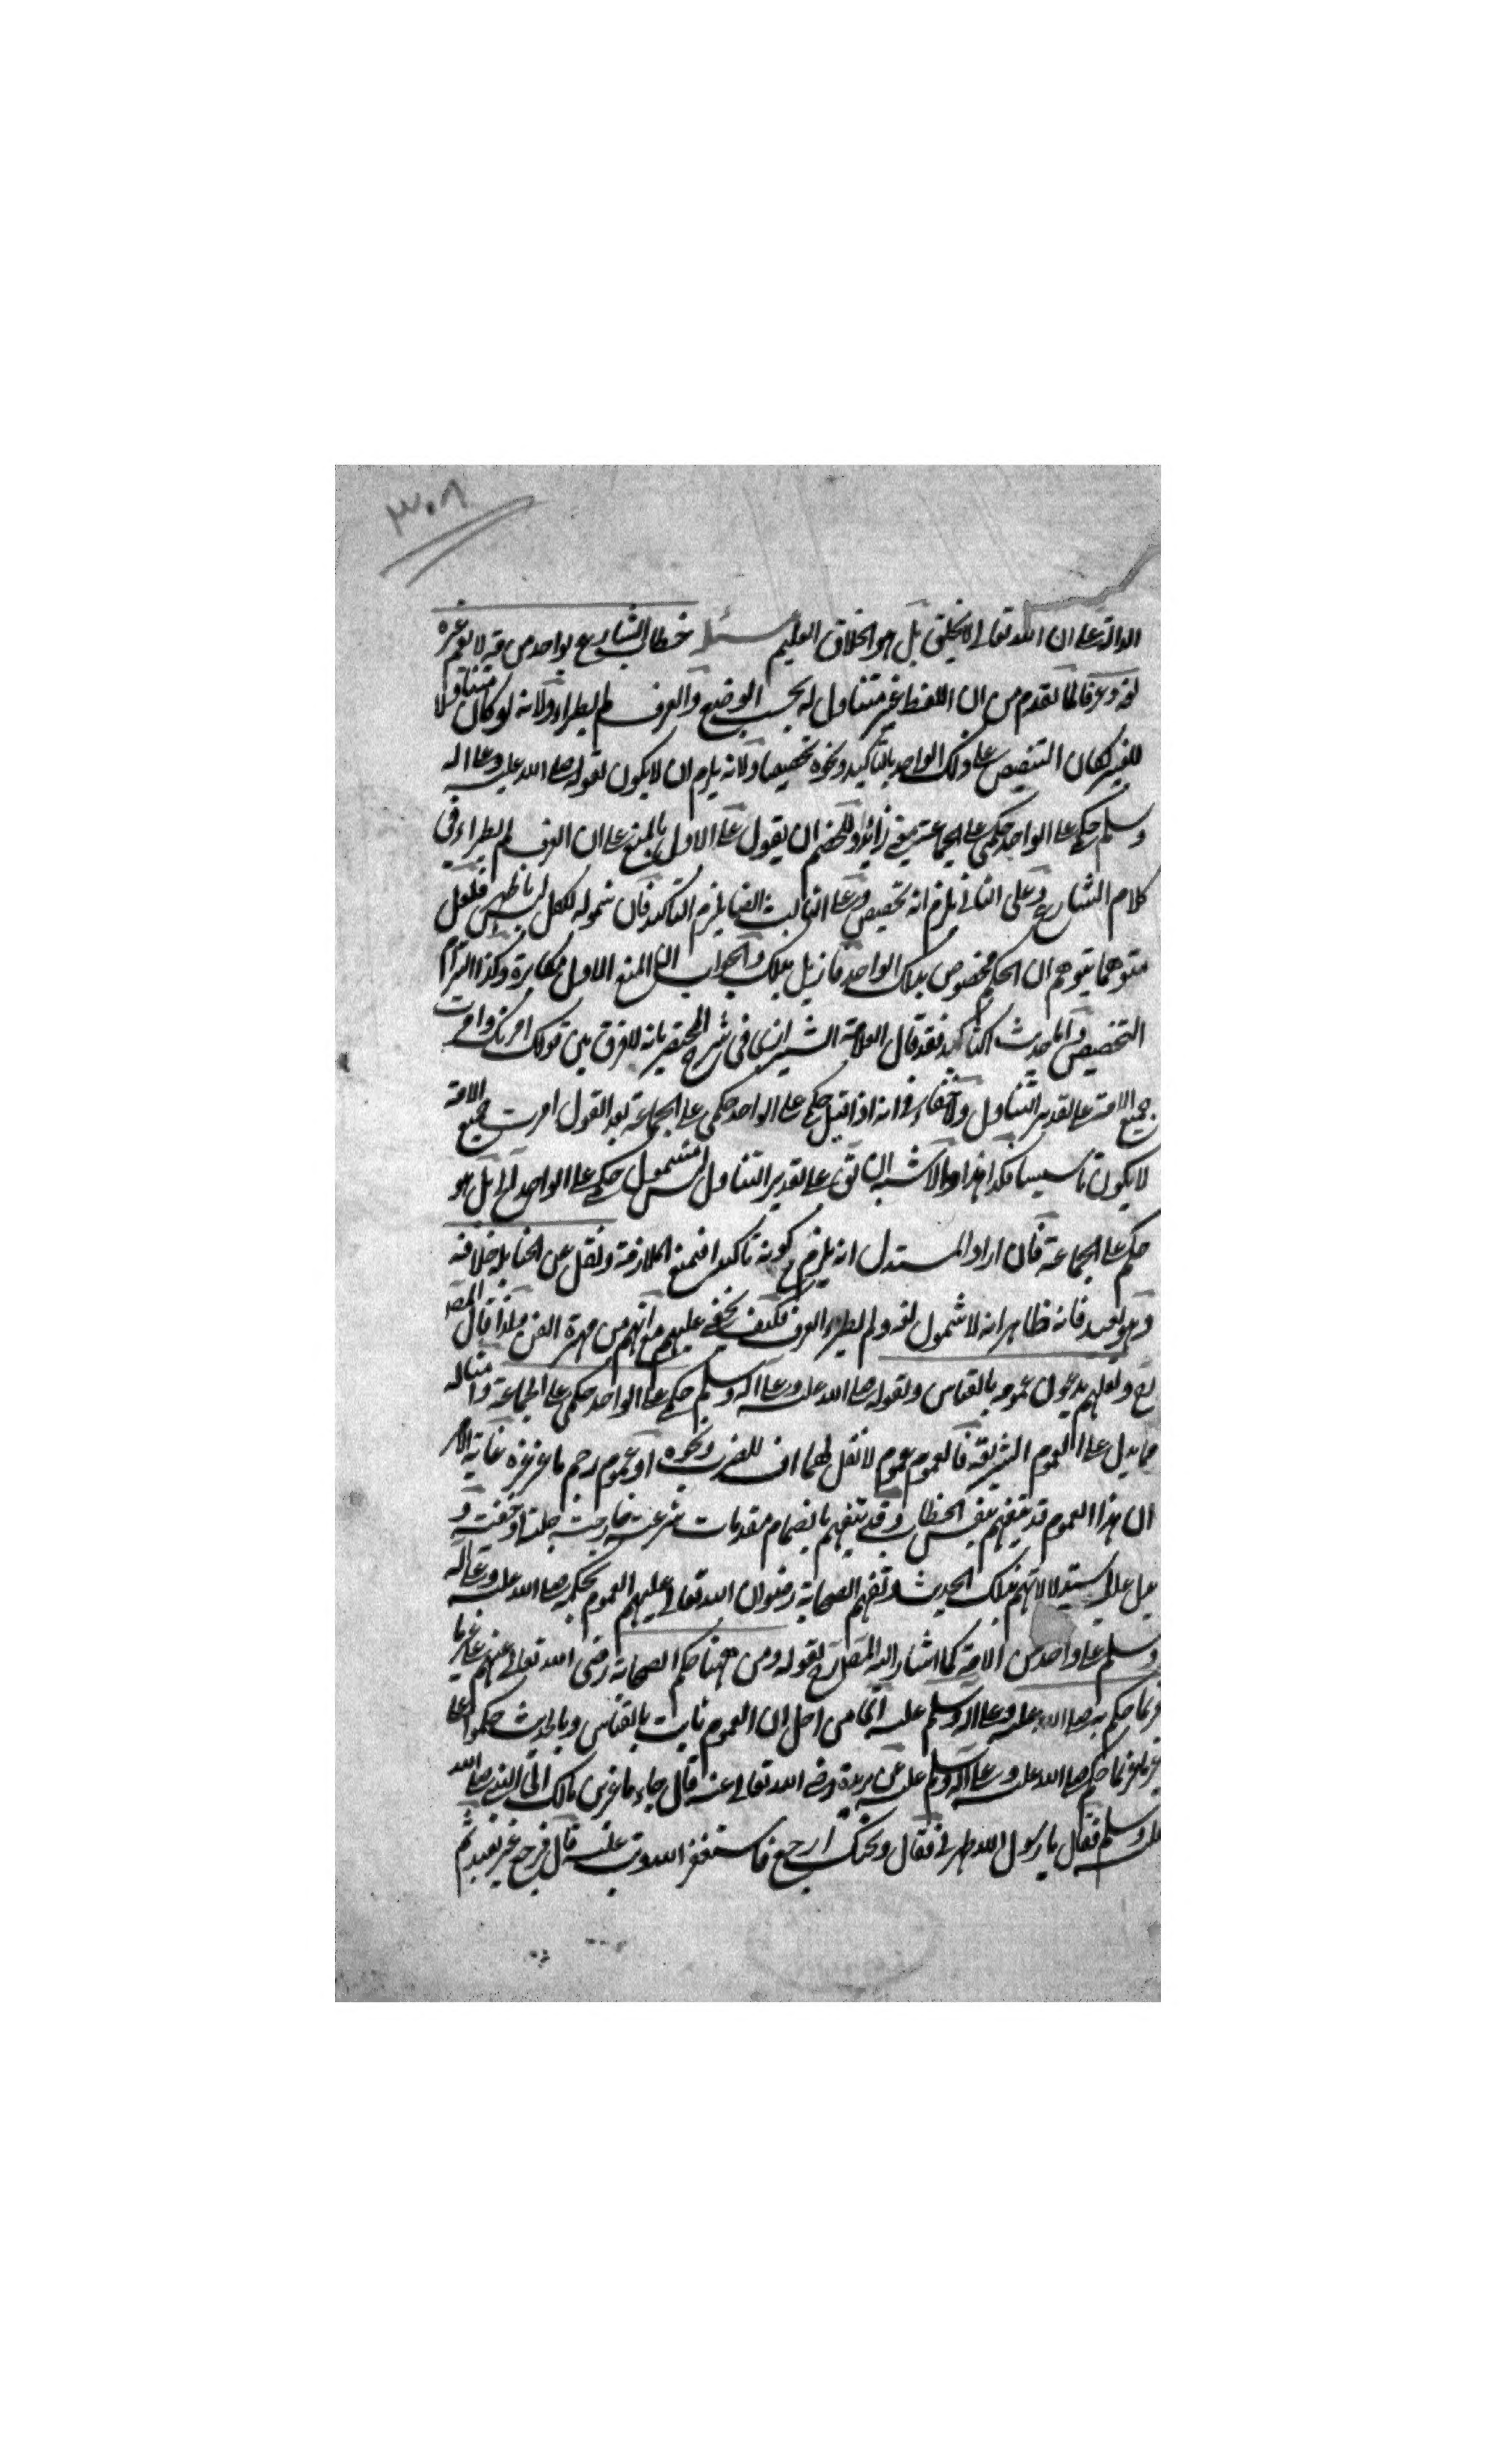 ٣٠٨
الدالة على ان الله تعالى لا يخلق بل هو الخلاق العليم مسئلة خطاب الشارع بواحد من لا يعم غيره
لغة وعرفا لما تقدم من ان اللفظ غير متناول له بحسب الوضع والعرف لم يطراء ولانه لو كان متناولا
للغير لكان التنصيص على ذلك الواحد بالتاكيد ونحوه تخصيصا ولانه يلزم ان لا يكون لقوله صلى الله عليه وعلى اله
وسلم حكمي على الواحد حكمي على الجماعة معنى زائدا وللخصم ان يقول على الاول بالمنع على ان العرف لم يطراء في
كلام الشارع وعلى الثاني يلزم انه تخصيص وعلى الثالث ايضا يلزم التاكيد فان شموله للكل ليس باظهر فلعل
متوهما يتوهم ان الحكم مخصوص بذلك الواحد فازيل بذلك والجواب ان المنع الاول مكابرة وكذا التزام
التخصيص واما حديث التاكيد فقد قال العلامة الشيرازي في شرح المختصر بانه لا فرق بين قولك امرتك وامرت
جميع الامة على تقدير التناول ولا خفاء في انه اذا قيل حكمي على الواحد حكمي على الجماعة بعد القول امرت جميع الامة
لا يكون تاسيسا فكذا هذا والاشبه ان على تقدير التناول ليس مشمول حكمي على الواحد الخ بل هو
حكم على الجماعة فان اراد المستدل انه يلزم كونه تاكيدا فيمنع الملازمة ونقل عن الحنابلة خلافه
وهو بعيد فانه ظاهر انه لا شمول لغة ولم يطراء العرف فكيف يخفى عليهم مع انهم من مهرة الفن ولذا قال المصـ
رح ولعلهم يدعون عمومه بالقياس وبقوله صلى الله عليه وعلى اله وسلم حكمي على الواحد حكمي على الجماعة وامثاله
مما يدل على العموم الشريعة فالعموم عموم لا تقل لهما اف للضرب ونحوه او عموم رجم ماعز غيره غاية الامر
ان هذا العموم قد يتفهم بنفس الخطاب وقد يتفهم بانضمام مقدمات شرعية خارجية جلية او خفية و
يدل عليه استدلالاتهم بذلك الحديث وتفهم الصحابة رضوان الله تعالى عليهم العموم بحكمه صلى الله عليه وعلى اله
وسلم على واحد من الامة كما اشار اليه المصـ رح بقوله ومن ههنا حكم الصحابة رضي الله تعالى عنهم على غير ما
عز بما حكم به صلى الله عليه وعلى اله وسلم عليه اى من اجل ان العموم ثابت بالقياس وبالحديث حكموا على
غير ماعز بما حكم صلى الله عليه وعلى اله وسلم عليه عن بريدة رضي الله تعالى عنه قال جاء ماعز بن مالك الى النبي صلى الله
عليه وسلم فقال يا رسول الله طهرني فقال ويحك ارجع فاستغفر الله وتب عليه قال فرجع غير بعيد ثم